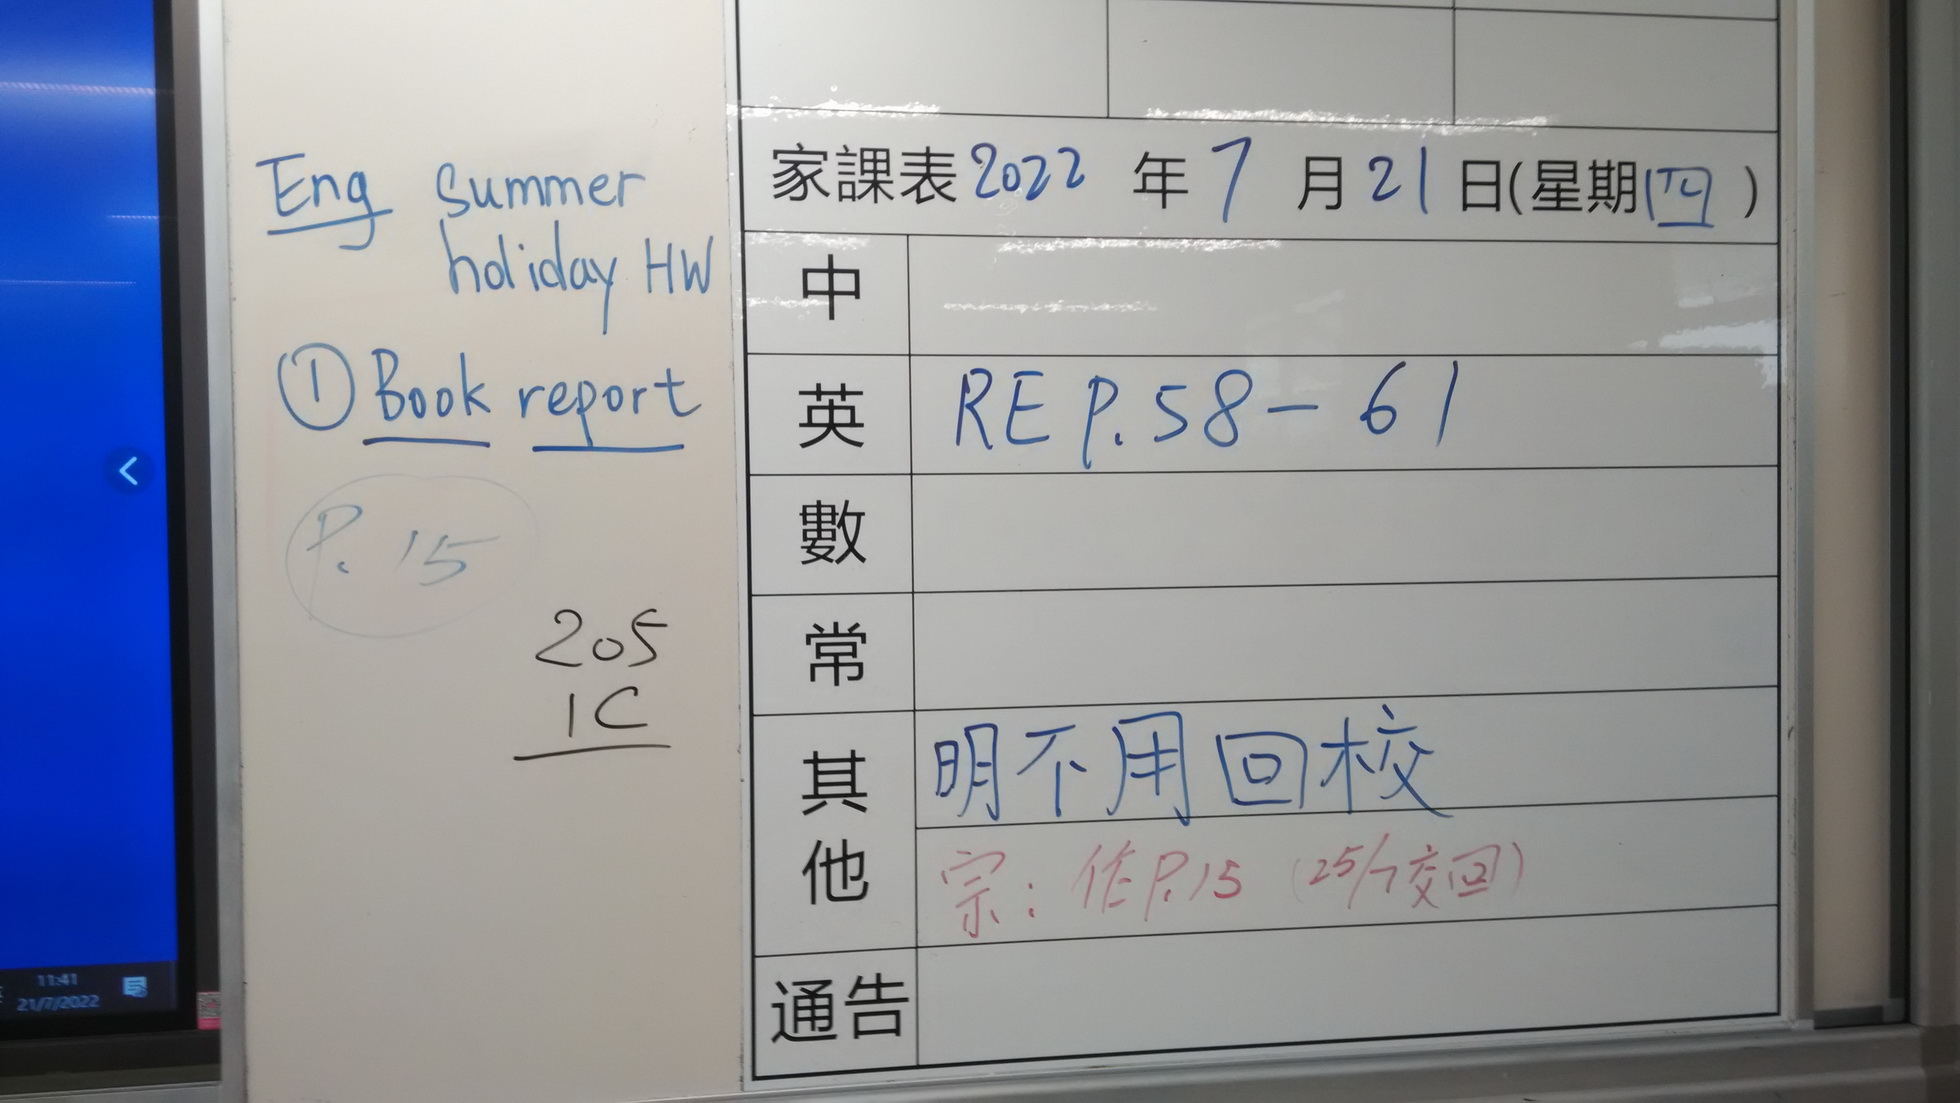 Eng summer
holiday HW
① Book report
P. 15
205
1C
家課表 2022 年 7 月 21 日(星期四)
中
英 RE P.58 - 61
數
常
其他
明不用回校
宗: 作P.15 (25/7交回)
通告
11:41
21/7/2022